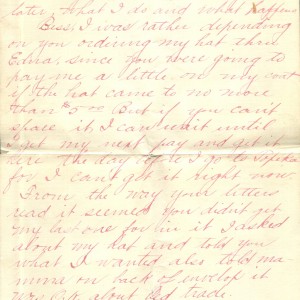 later, what I do and what happens
Bess, I was rather depending
on you ordering my hat thru
Edna, since you were going to
pay me a little on my coat
if the hat came to no more
than $5.00 But if you can't
space it I can wait until
I get my next pay and get it
here the day I go to Topeka
for I can't get it right now.
From the way your letters
read it seemed you didn't get
my last one for in it I asked
about my hat and told you
what I wanted also told ma
mine on back of envelop it
was O.K. about trade